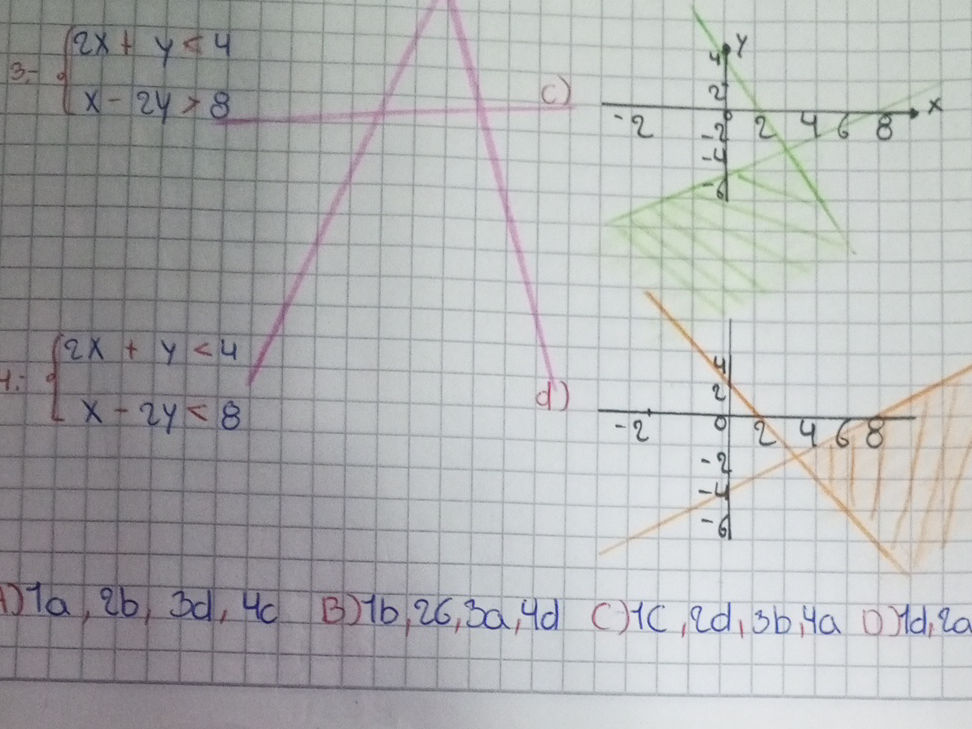 2x + y < 4
3.- x - 2y > 8
c)
y
4
2
-2 0 2 4 6 8 x
-2
-4
-6
2x + y < 4
4.- x - 2y < 8
d)
4
2
-2 0 2 4 6 8
-2
-4
-6
A) 1a, 2b, 3d, 4c B) 1b, 2c, 3a, 4d C) 1c, 2d, 3b, 4a D) 1d, 2a